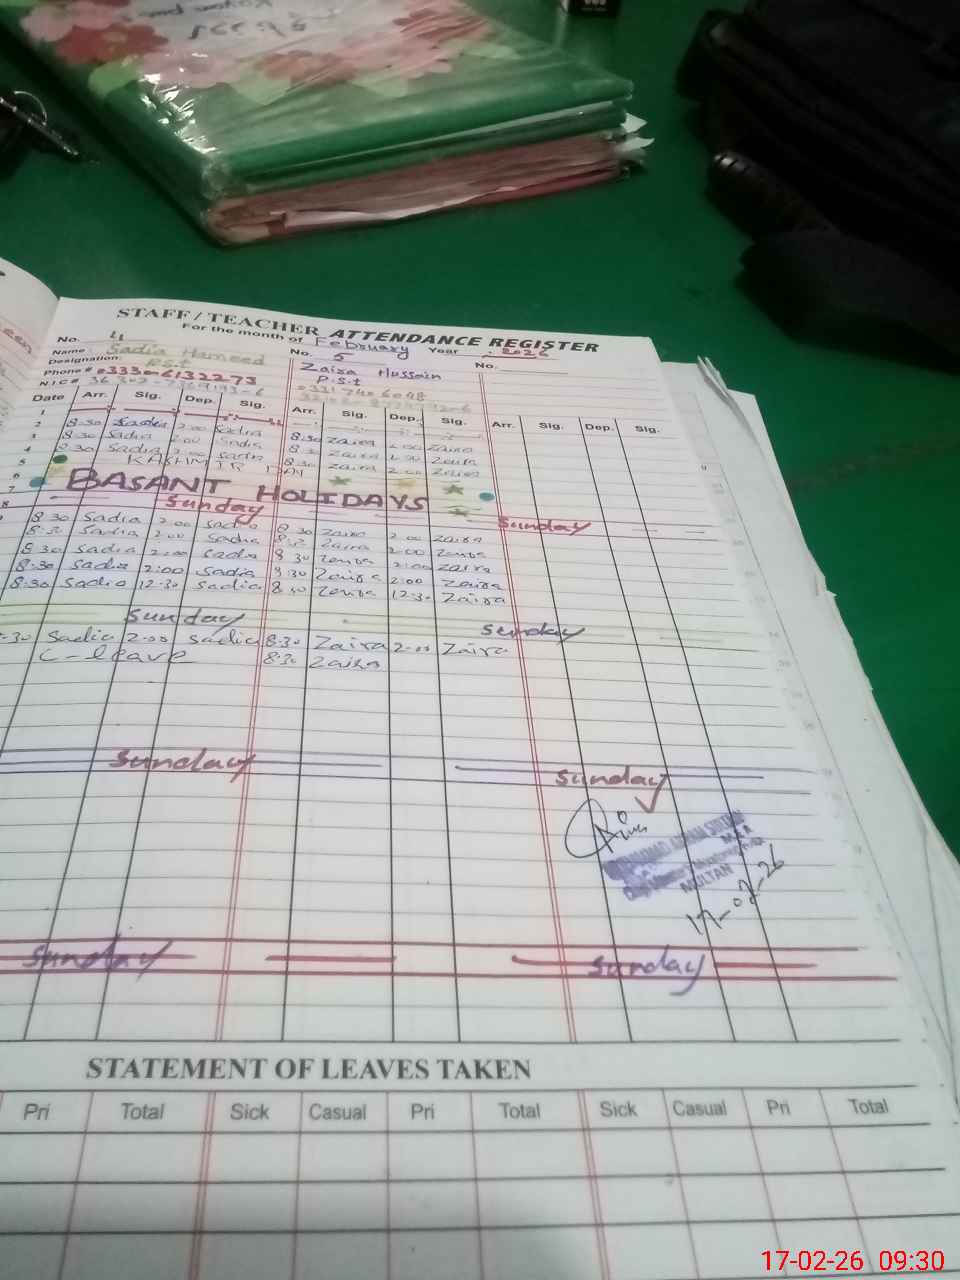 STAFF / TEACHER ATTENDANCE REGISTER
For the month of February Year 2026
No. 4 No. 5 No.
Name: Sadia Hameed Zaira Hussain
Designation: P.S.T P.S.t
Phone # 033306132273
N.I.C #
Date Arr. Sig. Dep. Sig. Arr. Sig. Dep. Sig. Arr. Sig. Dep. Sig.
1
2 8:30 Sadia 2:00 Sadia 8:30 Zaira 2:00 Zaira
3 8:30 Sadia 2:00 Sadia 8:30 Zaira 2:00 Zaira
4 8:30 Sadia 2:00 Sadia 8:30 Zaira 2:00 Zaira
5 KASHMIR DAY
6 BASANT HOLIDAYS
7
8 Sunday Sunday
8:30 Sadia 2:00 Sadia 8:30 Zaira 2:00 Zaira
8:30 Sadia 2:00 Sadia 8:30 Zaira 2:00 Zaira
8:30 Sadia 2:00 Sadia 8:30 Zaira 2:00 Zaira
8:30 Sadia 2:00 Sadia 8:30 Zaira 2:00 Zaira
8:30 Sadia 12:30 Sadia 8:30 Zaira 12:30 Zaira
Sunday Sunday
Sadia 2:00 Sadia 8:30 Zaira 2:00 Zaira
C-leave 8:30 Zaira
Sunday Sunday
MULTAN
17-02-26
Sunday Sunday
STATEMENT OF LEAVES TAKEN
Pri Total Sick Casual Pri Total Sick Casual Pri Total
17-02-26 09:30